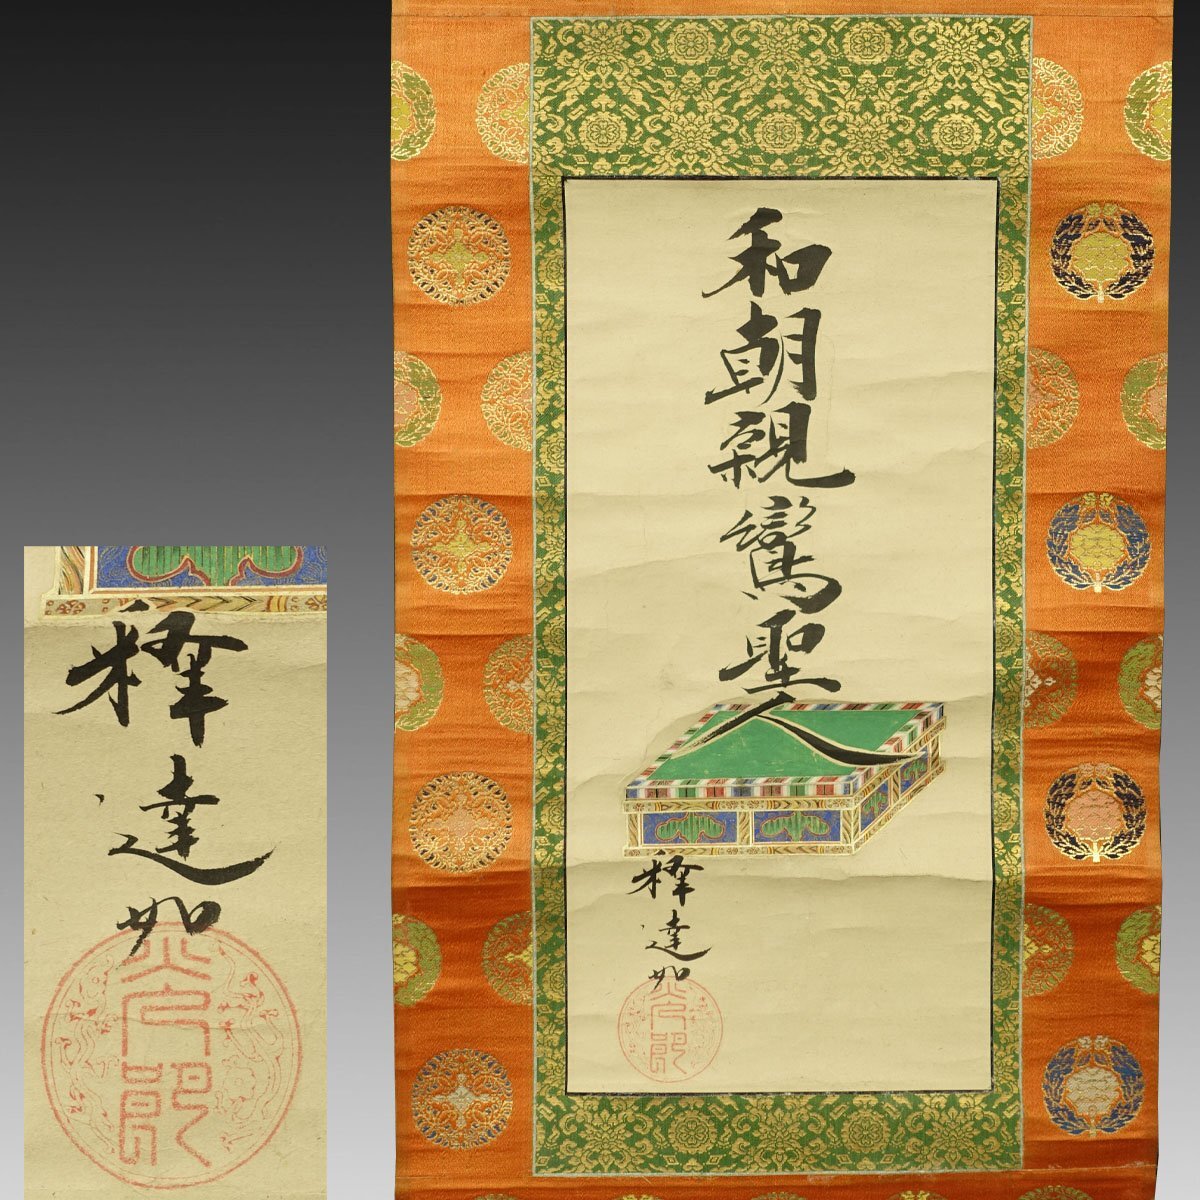 和朝親鸞聖人
釋達如
釋達如